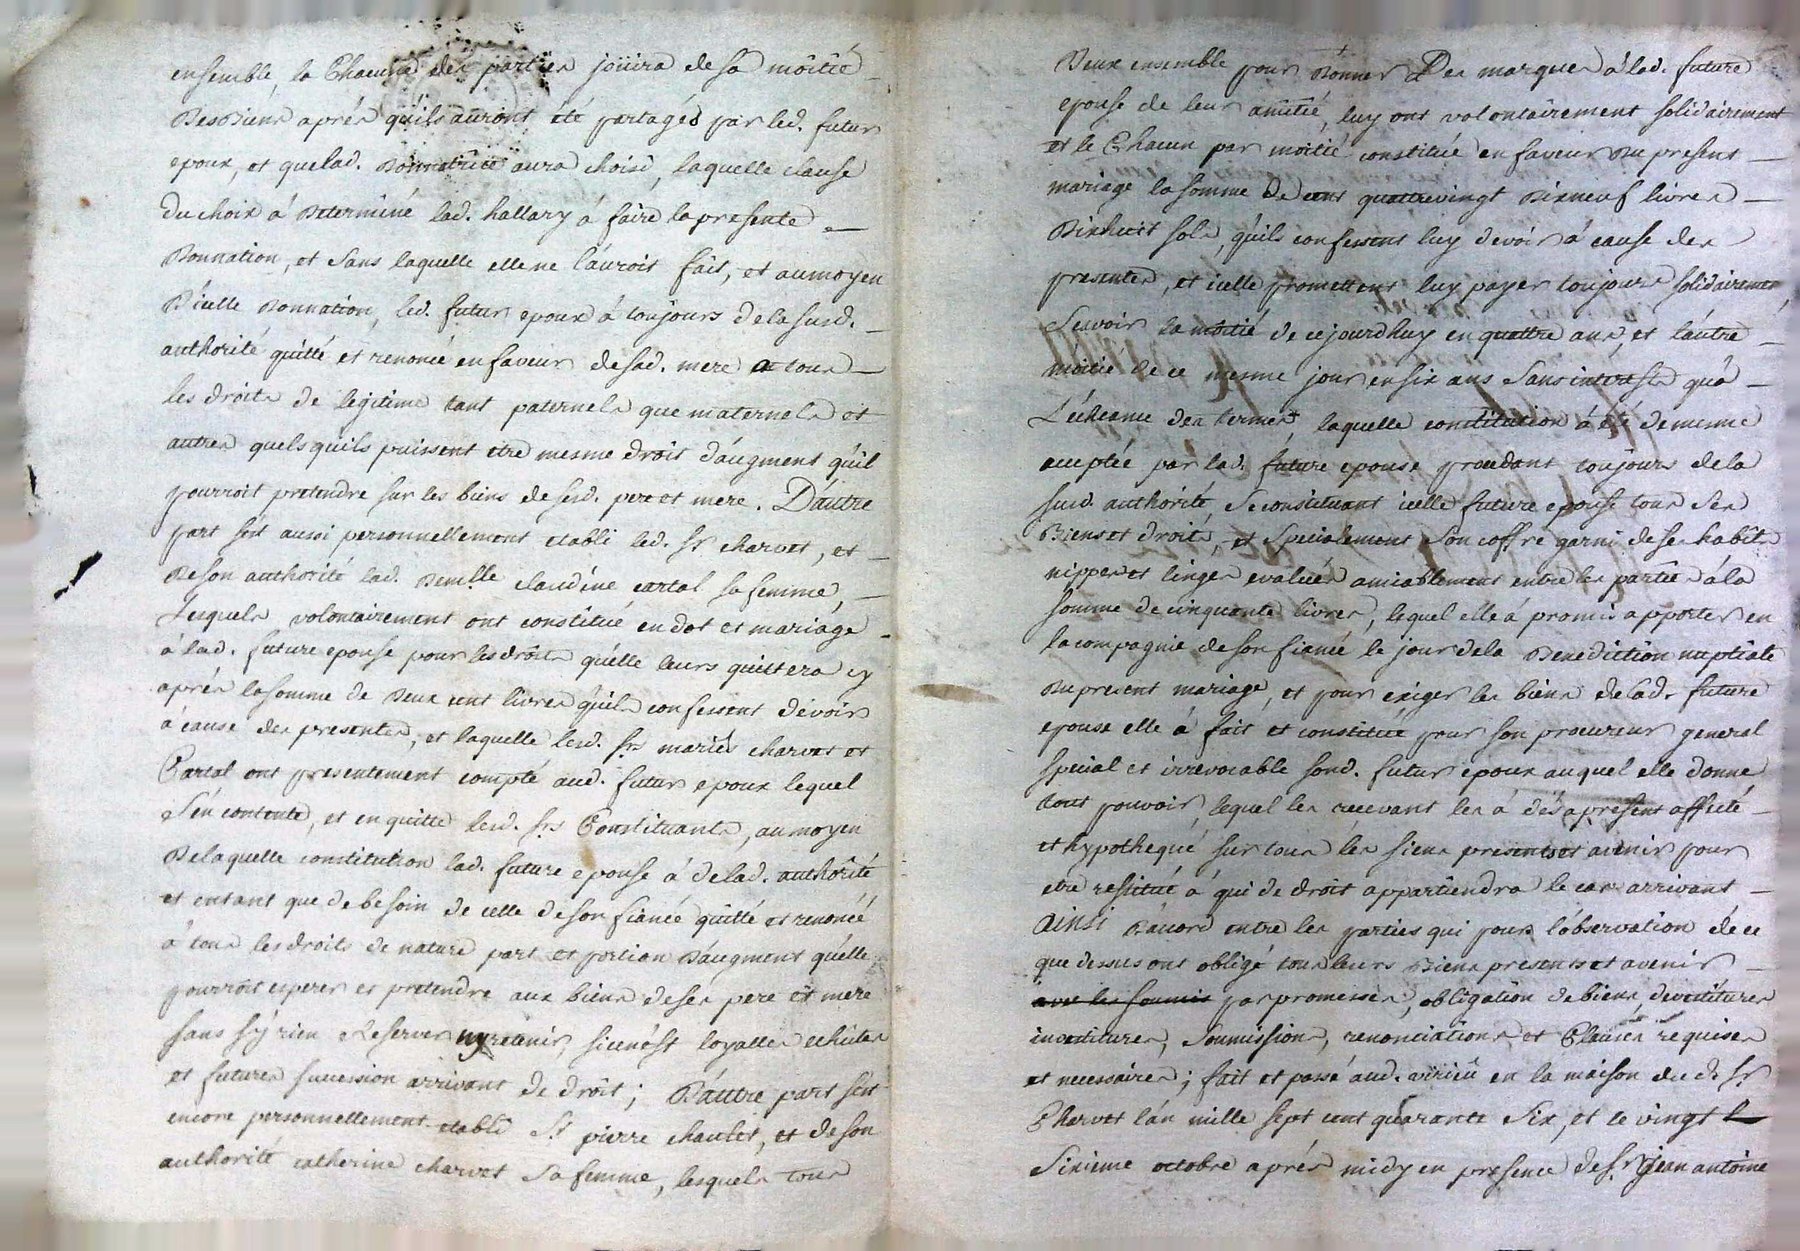 ensemble, la Chacune des parties joüira de sa môitié
Des Biens aprés qu'ils auront été partagés par led. futur
epoux, et que lad. Donnatrice aura choisi, laquelle clause
du choix à Determiné lad. hallary à faire la presente
Donnation, et sans laquelle elle ne l'auroit fait, et au moyen
D'icelle Donnation, led. futur epoux à toujours de la susd.
authorité quitté et renoncé en faveur de sad. mere a tous
les droits de legitime tant paternels que maternels et
autres quels qu'ils puissent etre mesme droit d'augment qu'il
pourroit pretendre sur les biens de sesd. pere et mere. D'autre
part s'est aussi personnellement etabli led. sr charvet, et
De son authorité lad. Demlle claudine cartal sa femme,
Lesquels volontairement ont constitué en dot et mariage
à lad. future epouse pour les droits qu'elle leurs quittera cy
aprés la somme de Deux cent livres qu'ils confessent devoir
à cause des presentes, et laquelle lesd. srs mariés charvet et
Cartal ont presentement compté aud. futur epoux lequel
s'en contente, et en quitte lesd. srs Constituants, au moyen
De laquelle constitution lad. future epouse à de lad. authorité
et entant que de besoin de celle de son fiancé quitté et renoncé
à tous les droits de nature part et portion D'augment qu'elle
pourroit esperer et pretendre aux biens de ses pere et mere
sans s'y rien Reserver ny retenir, si ce n'est loyalles echutes
et futures succession arrivant de droit; D'autre part s'est
encore personnellement etabli Sr pierre chaulet, et de son
authorité catherine charvet sa femme, lesquels tous
Deux ensemble pour Donner Des marques à lad. future
epouse de leur amitié, luy ont volontairement solidairement
et le Chacun par moitié constitué en faveur Du present
mariage la somme De cent quattrevingt Dixneuf livres
Dixhuit sols, qu'ils confessent luy devoir à cause des
presentes, et icelle promettent luy payer toujours solidairement
Scavoir la moitié de cejourdhuy en quattre ans, et l'autre
moitié de ce mesme jour en six ans sans interests qu'à
L'echeance des termes, laquelle constitution à été de mesme
acceptée par lad. future epouse procedant toujours de la
susd. authorité, se constituant icelle future epouse tous ses
Biens et droits, et specialement son coffre garni de ses habits
nippes et linges evalués amiablement entre les parties à la
somme de cinquante livres, lequel elle à promis apporter en
la compagnie de son fiancé le jour de la Benediction nuptiale
Du present mariage, et pour exiger les biens de lad. future
epouse elle à fait et constitué pour son procureur general
special et irrevocable sond. futur epoux auquel elle donne
tout pouvoir, lequel les recevant les à dés apresent affecté
et hypothequé sur tous les siens presents et avenir pour
etre restitué à qui de droit appartiendra le cas arrivant
Ainsi D'accord entre les parties qui pour l'observation de ce
que dessus ont obligé tous leurs Biens presents et avenir
avec les soumis par promesses, obligation de biens, devestitures
investitures, soumissions, renonciations et Clauses requises
et necessaires; fait et passé aud. en la maison dud. sr
Charvet l'an mille sept cent quarante six, et le vingt
Sixieme octobre aprés midy en presence de sr jean antoine